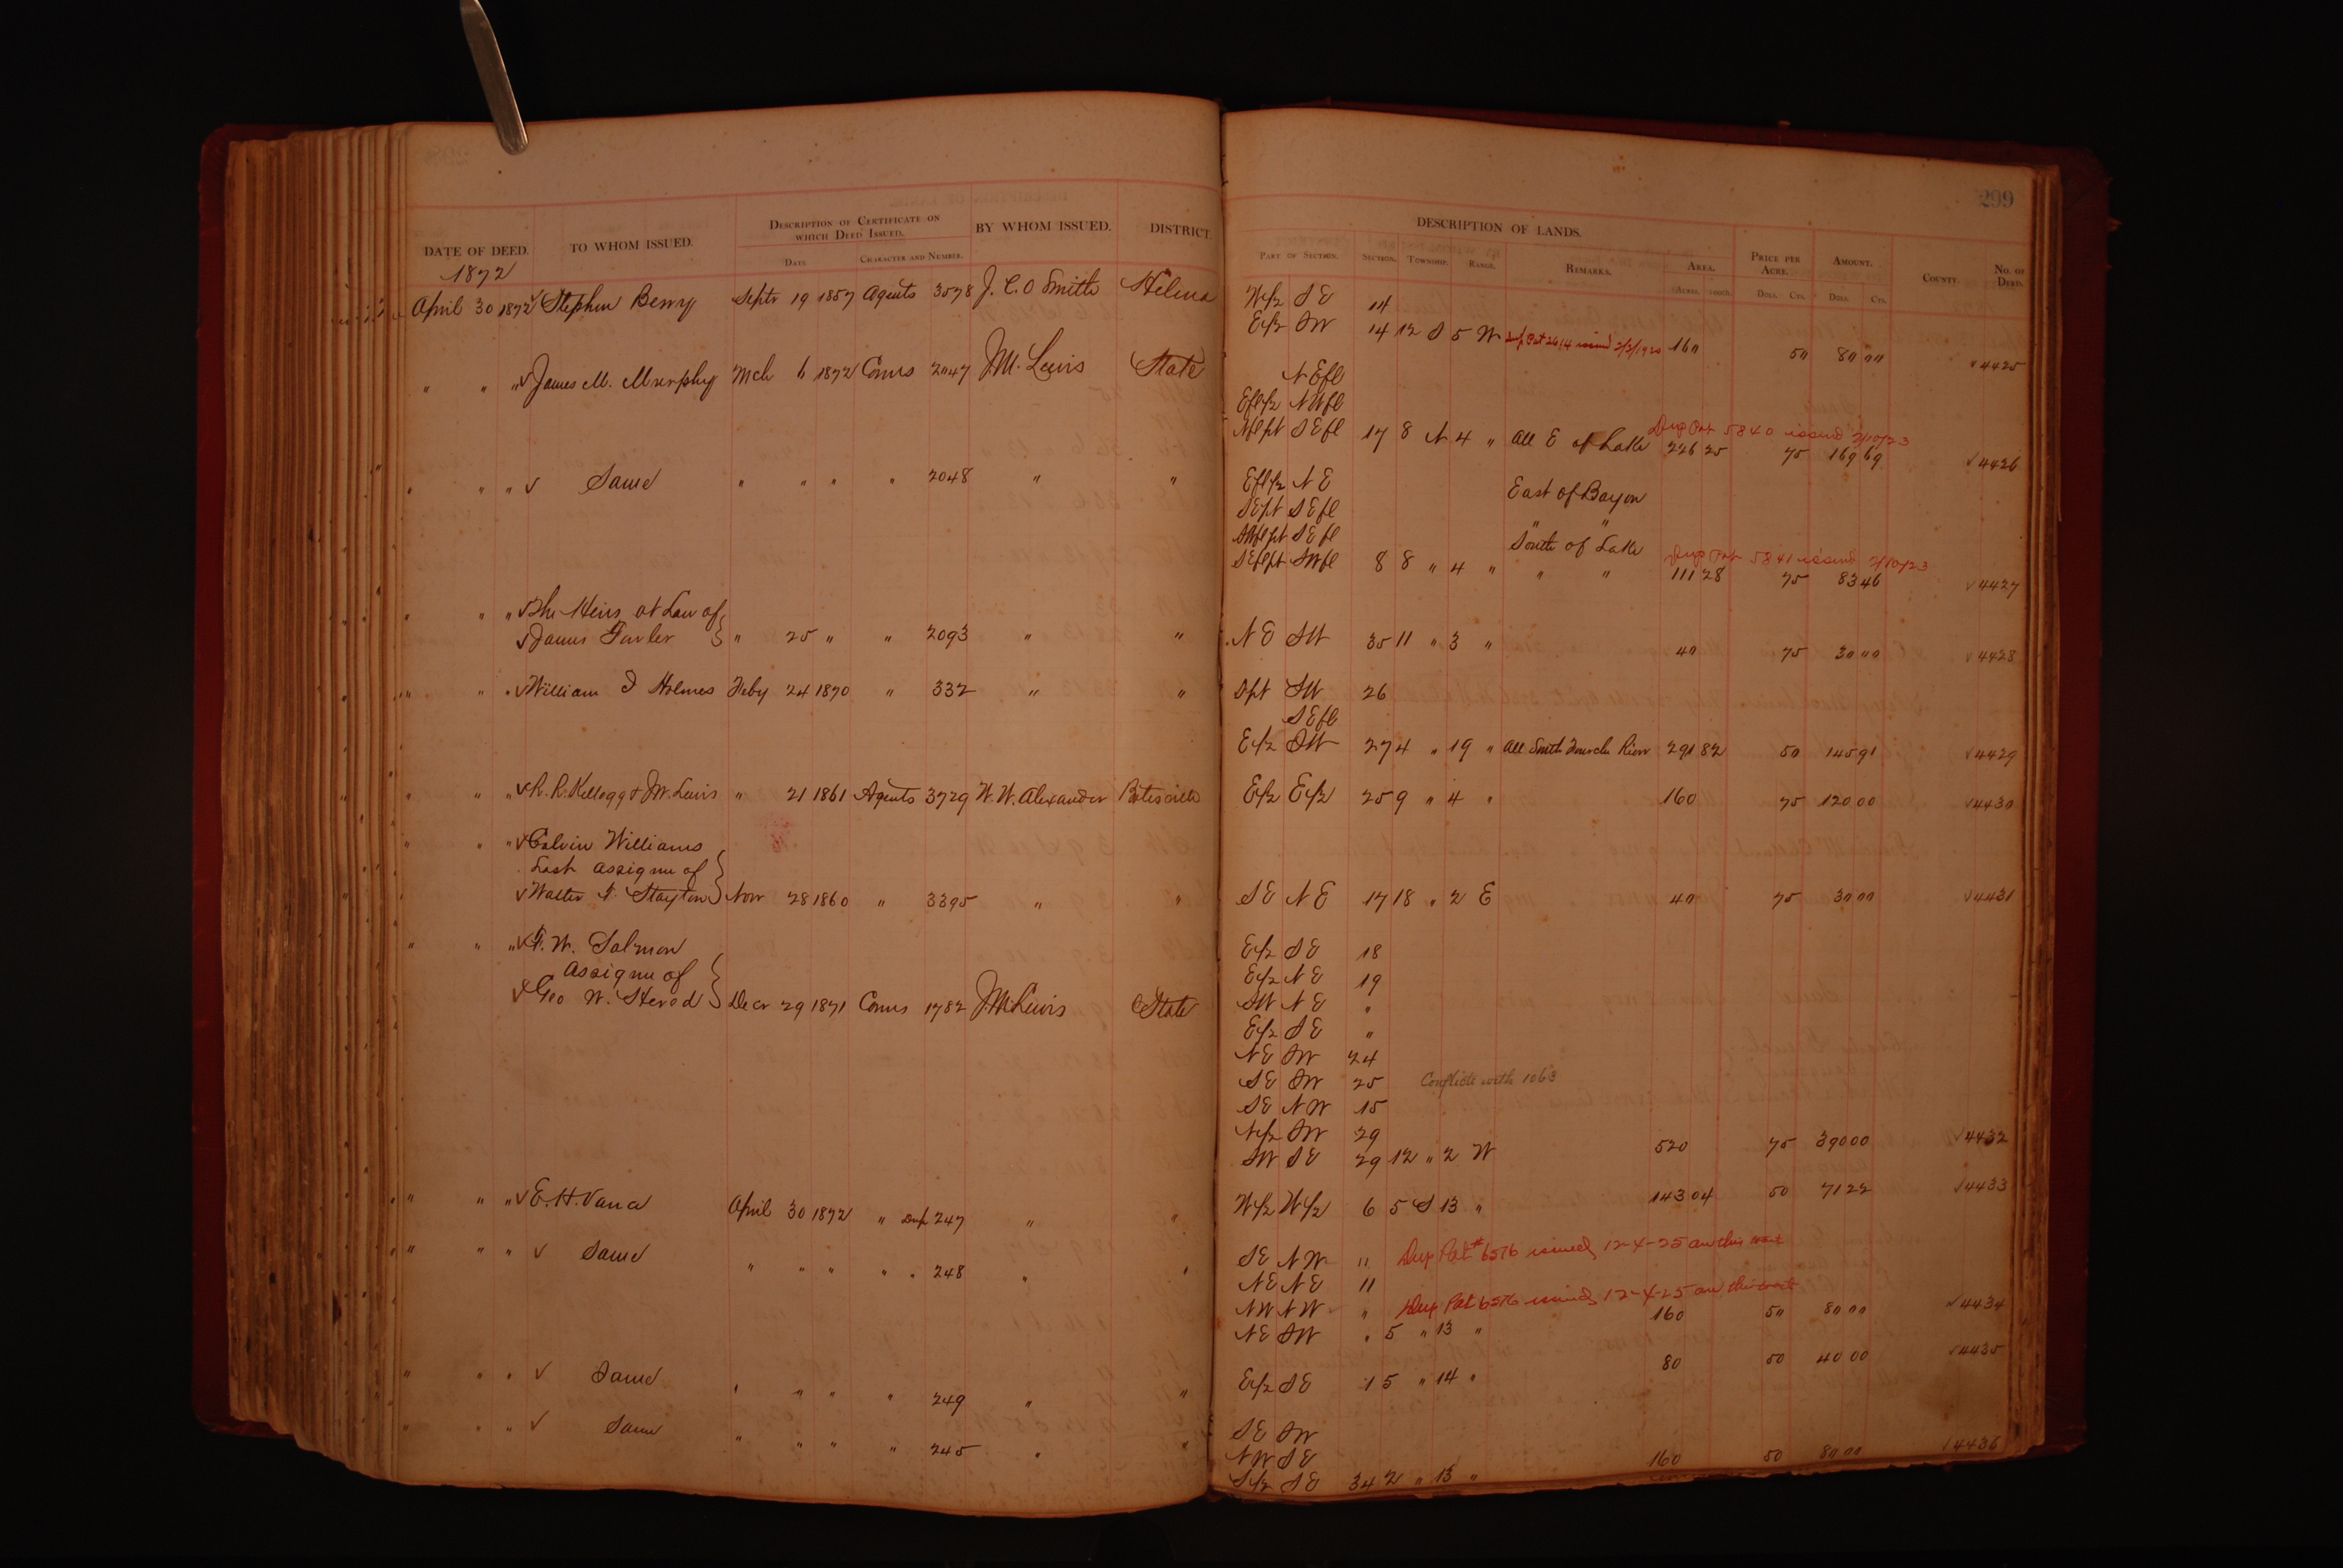 299
DATE OF DEED. TO WHOM ISSUED. DESCRIPTION OF CERTIFICATE ON WHICH DEED ISSUED. BY WHOM ISSUED. DISTRICT. DESCRIPTION OF LANDS. PRICE PER ACRE. AMOUNT. COUNTY. NO. OF DEED.
DATE. CHARACTER AND NUMBER. PART OF SECTION. SECTION. TOWNSHIP. RANGE. REMARKS. AREA. ACRES. 100THS. DOLL. CTS. DOLL. CTS.
1872
April 30 1872 ✓ Stephen Berry Septr 19 1857 Agents 3578 J. C. O Smith Helena W½ SE 14
E½ SW 14 12 S 5 W Dup Pat 2614 issued 2/3/1920 160 50 80 00 ✓4425
" " " ✓ James M. Murphy Mch 6 1872 Coms 2047 J.M. Lewis State NEfl
Efl½ NWfl
Nflpt SEfl 17 8 N 4 " All E of Lake 226 25 75 169 69 ✓4426
Dup Pat 5840 issued 2/10/23
" " " ✓ Same " " " " 2048 " " Efl½ NE East of Bayou
SEpt SEfl " "
SWflpt SEfl South of Lake
SEflpt SWfl 8 8 " 4 " " " 111 28 75 83 46 ✓4427
Dup Pat 5841 issued 2/10/23
" " " ✓ The Heirs at Law of
✓ James " 25 " " 2093 " " NE SW 35 11 " 3 " 40 75 30 00 ✓4428
" " " ✓ William Holmes Feby 24 1870 " 332 " " Spt SW 26
SEfl
E½ SW 27 4 " 19 " All South Fourche River 291 82 50 145 91 ✓4429
" " " ✓ R. R. Kellogg & J.M. Lewis " 21 1861 Agents 3729 W. W. Alexander Batesville E½ E½ 25 9 " 4 " 160 75 120 00 ✓4430
" " " ✓ Calvin Williams
Last assignee of
✓ Walter Stayton Nov 28 1860 " 3395 " " SE NE 17 18 " 2 E 40 75 30 00 ✓4431
" " " ✓ W. Salmon E½ SE 18
assignee of E½ NE 19
✓ Geo W. Decr 29 1871 Coms 1782 J.M. Lewis State SW NE "
E½ SE "
NE SW 24
SE SW 25 Conflicts with 1063
SE NW 15
N½ SW 29
SW SE 29 12 " 2 W 520 75 390 00 ✓4432
" " " ✓ E. H. Vance April 30 1872 " Dup 247 " " W½ W½ 6 5 S 13 " 143 04 50 71 22 ✓4433
" " " ✓ Same " " " " " 248 " " SE NW " Dup Pat # 6576 issued 12-4-25 on this tract
NE NE 11
NW NW " Dup Pat 6576 issued 12-4-25 on this tract
NE SW " 5 " 13 " 160 50 80 00 ✓4434
" " " ✓ Same " " " " 249 " " E½ SE 1 5 " 14 " 80 50 40 00 ✓4435
" " " ✓ Same " " " " 245 " " SE SW
NW SE
S½ SE 34 2 " 13 " 160 50 80 00 ✓4436